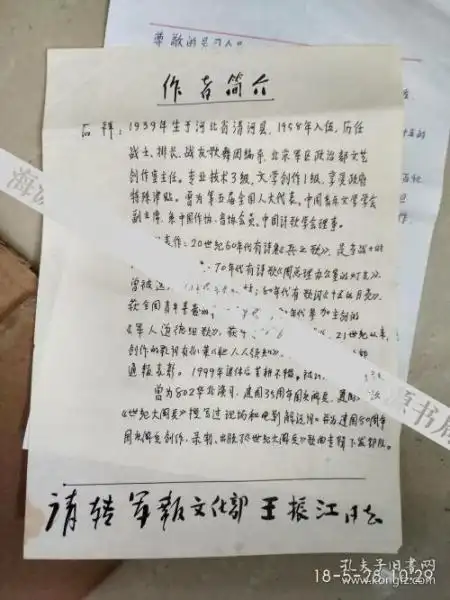 尊敬的
作者简介
石祥：1939年生于河北省清河县，1958年入伍，历任
战士、排长、战友歌舞团编导、北京军区政治部文艺
创作室主任。专业技术3级，文学创作1级，享受政府
特殊津贴。曾为第五届全国人大代表，中国音乐文学学会
副主席，系中国作协、音协会员，中国诗歌学会理事。
表作：20世纪60年代有诗集《兵之歌》，
70年代有诗歌《周总理办公室的灯光》，
曾被选 80年代有歌词《十五的月亮》，
获全国青年喜爱的 年代参加主创的
《军人道德组歌》，获 21世纪以来，
创作的歌词有
通报表彰。1999年退休后笔耕不辍。
曾为802华北演习、建国35周年国庆阅兵、
《世纪大阅兵》撰写过现场和电影解说词。并为建国50周年
国庆阅兵创作、录制、出版了《世纪大阅兵》歌曲专辑下发部队。
请转军报文化部王振江同志
孔夫子旧书网
www.kongfz.com
18-5-28 10:29